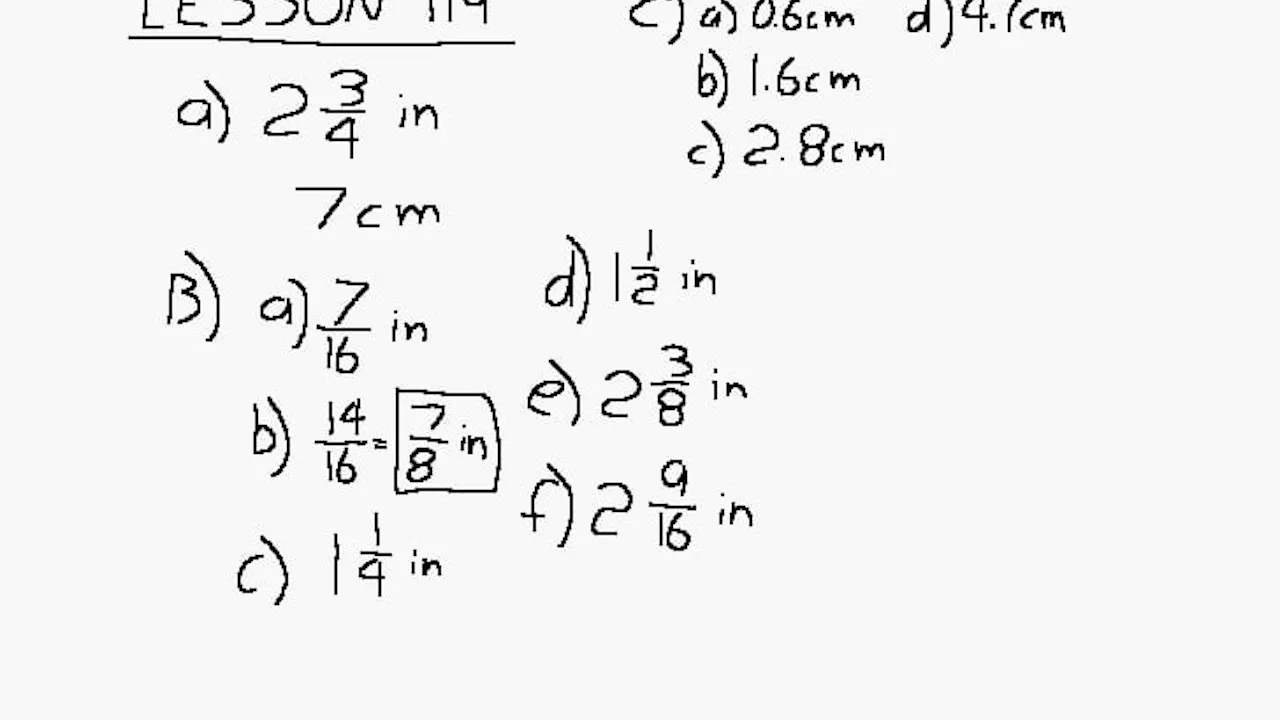 LESSON 119
a) 2 3/4 in
7cm
B) a) 7/16 in
b) 14/16 = 7/8 in
c) 1 1/4 in
d) 1 1/2 in
e) 2 3/8 in
f) 2 9/16 in
C) a) 0.6cm d) 4.7cm
b) 1.6cm
c) 2.8cm